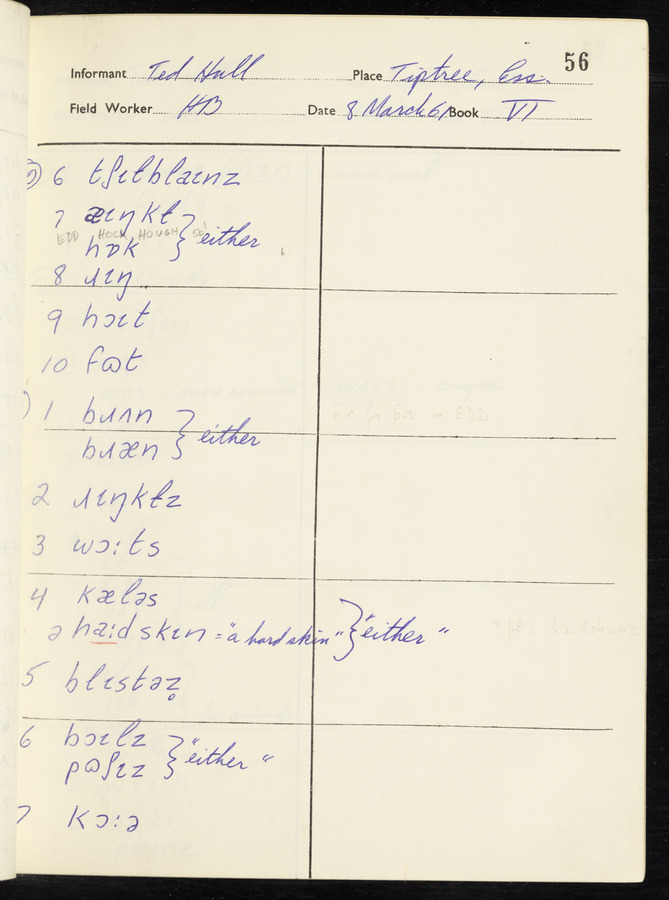 56
Informant Ted Hull Place Tiptree, Ess.
Field Worker HB Date 8 March 61 Book VI
6 tʃɪɫblaɪnz
7 æɪŋkɫ
EDD HOCK, HOUGH sb¹
hɒk } either
8 ɹɪŋ
9 hɔɪt
10 fɷt
1 bɹʌn
bɹæn } either
2 ɹɪŋkɫz
3 wɔ:ts
4 kæləs
ə ha:d skɪn = "a hard skin" } "either"
5 blɪstəz̥
6 bɔɪlz
pɷʃɪz } "either"
7 kɔ:ə